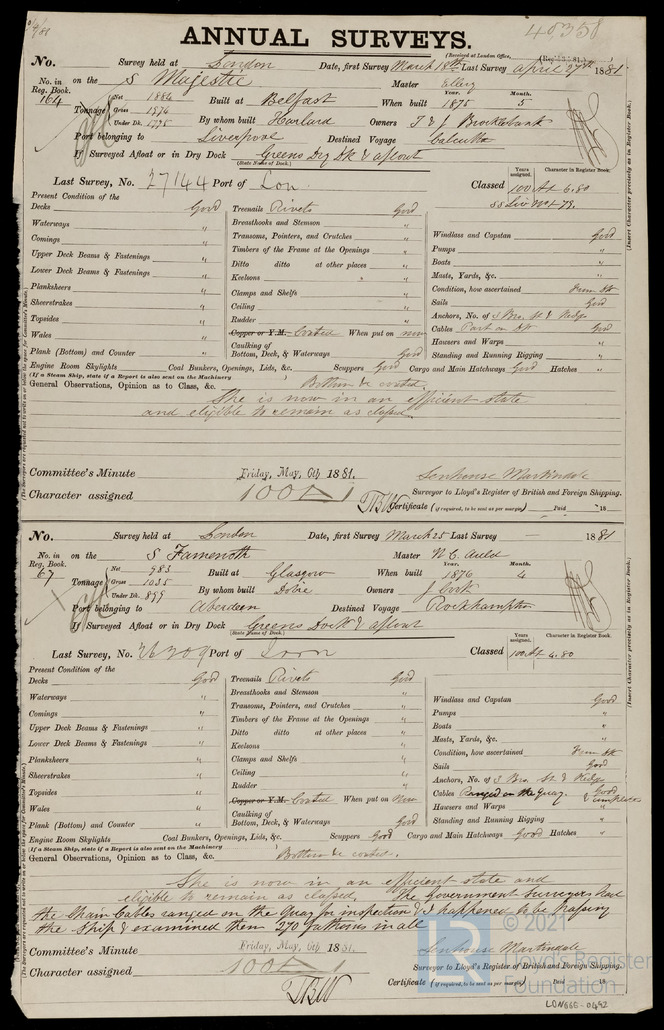 40358
ANNUAL SURVEYS.
(Received at London Office,
No. Survey held at London Date, first Survey March 18th Last Survey April 27th 1881
No. in Reg. Book. on the S Majestic Master Ellery
164 Tonnage Net 1884 Gross 1974 Under Dk. 1775 Built at Belfast When built Year. 1875 Month. 5
By whom built Harland Owners T & J Brocklebank
Port belonging to Liverpool Destined Voyage Calcutta
If Surveyed Afloat or in Dry Dock Greens Dry Dk & afloat
(State Name of Dock.)
Last Survey, No. 27144 Port of Lon Classed Years assigned. 100 Character in Register Book. A1 6.80
SS Liv No1-79.
Present Condition of the
Decks Good Treenails Rivets Good
Waterways " Breasthooks and Stemson " Windlass and Capstan Good
Comings " Transoms, Pointers, and Crutches " Pumps "
Upper Deck Beams & Fastenings " Timbers of the Frame at the Openings " Boats "
Lower Deck Beams & Fastenings " Ditto ditto at other places " Masts, Yards, &c. "
Planksheers " Keelsons " Condition, how ascertained From Dk
Sheerstrakes " Clamps and Shelfs " Sails Good
Topsides " Ceiling " Anchors, No. of 3 Bro. St & Kedge
Wales " Rudder " Cables Part on Dk Good
Plank (Bottom) and Counter " Copper or Y.M. Coated When put on now Hawsers and Warps "
Caulking of Bottom, Deck, & Waterways Good Standing and Running Rigging "
Engine Room Skylights Coal Bunkers, Openings, Lids, &c. Scuppers Good Cargo and Main Hatchways Good Hatches "
(If a Steam Ship, state if a Report is also sent on the Machinery
General Observations, Opinion as to Class, &c. Bottom &c coated.
She is now in an efficient state
and eligible to remain as classed.
Committee's Minute Friday, May, 6th 1881. Senhouse Martindale
Character assigned 100 A 1 Surveyor to Lloyd's Register of British and Foreign Shipping.
Certificate (if required, to be sent as per margin) Paid 18
No. Survey held at London Date, first Survey March 25 Last Survey 1881
No. in Reg. Book. on the S Famenoth Master N. C. Auld
67 Tonnage Net 983 Gross 1035 Under Dk. 899 Built at Glasgow When built Year. 1876 Month. 4
By whom built Dobie Owners J Cook
Port belonging to Aberdeen Destined Voyage Rockhampton
If Surveyed Afloat or in Dry Dock Greens Dock & afloat
(State Name of Dock.)
Last Survey, No. Port of Lon Classed Years assigned. 100 Character in Register Book. A1 4.80
Present Condition of the
Decks Good Treenails Rivets Good
Waterways " Breasthooks and Stemson " Windlass and Capstan Good
Comings " Transoms, Pointers, and Crutches " Pumps "
Upper Deck Beams & Fastenings " Timbers of the Frame at the Openings " Boats "
Lower Deck Beams & Fastenings " Ditto ditto at other places " Masts, Yards, &c. "
Planksheers " Keelsons " Condition, how ascertained From Dk
Sheerstrakes " Clamps and Shelfs " Sails Good
Topsides " Ceiling " Anchors, No. of 3 Bro. St & Kedge
Wales " Rudder " Cables Ranged on the Quay. Good & complete
Plank (Bottom) and Counter " Copper or Y.M. Coated When put on Now Hawsers and Warps "
Caulking of Bottom, Deck, & Waterways Good Standing and Running Rigging "
Engine Room Skylights Coal Bunkers, Openings, Lids, &c. Scuppers Good Cargo and Main Hatchways Good Hatches "
(If a Steam Ship, state if a Report is also sent on the Machinery
General Observations, Opinion as to Class, &c. Bottom &c coated.
She is now in an efficient state and
eligible to remain as classed. The Government Surveyors had
the Chain Cables ranged on the Quay for inspection & I happened to be passing
the Ship & examined them 270 fathoms in all
Committee's Minute Friday, May, 6th 1881. Senhouse Martindale
Character assigned 100 A 1 Surveyor to Lloyd's Register of British and Foreign Shipping.
Certificate (if required, to be sent as per margin) Paid 18
(Insert Character precisely as in Register Book.)
© 2021
Lloyd's Register
Foundation
LR
LON666-0492